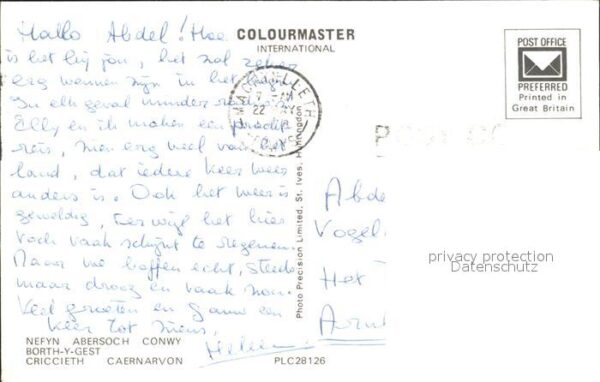 Hallo Abdel! Hoe
is het bij jou, het zal zeker
erg wennen zijn in het begin.
In elk geval minder
Elly en ik maken een
reis, zien erg veel van het
land, dat iedere keer weer
anders is. Ook het weer is
geweldig, terwijl het hier
toch vaak schijnt te regenen.
Maar we boffen echt, steeds
maar droog en vaak zon.
Veel groeten en gauw een
keer tot ziens,
Heleen
COLOURMASTER
INTERNATIONAL
POST OFFICE
PREFERRED
Printed in
Great Britain
MACHYNLLETH
22
Photo Precision Limited, St. Ives, Huntingdon
POST
Abde
Vogel
Het
privacy protection
Datenschutz
NEFYN ABERSOCH CONWY
BORTH-Y-GEST
CRICCIETH CAERNARVON
PLC28126